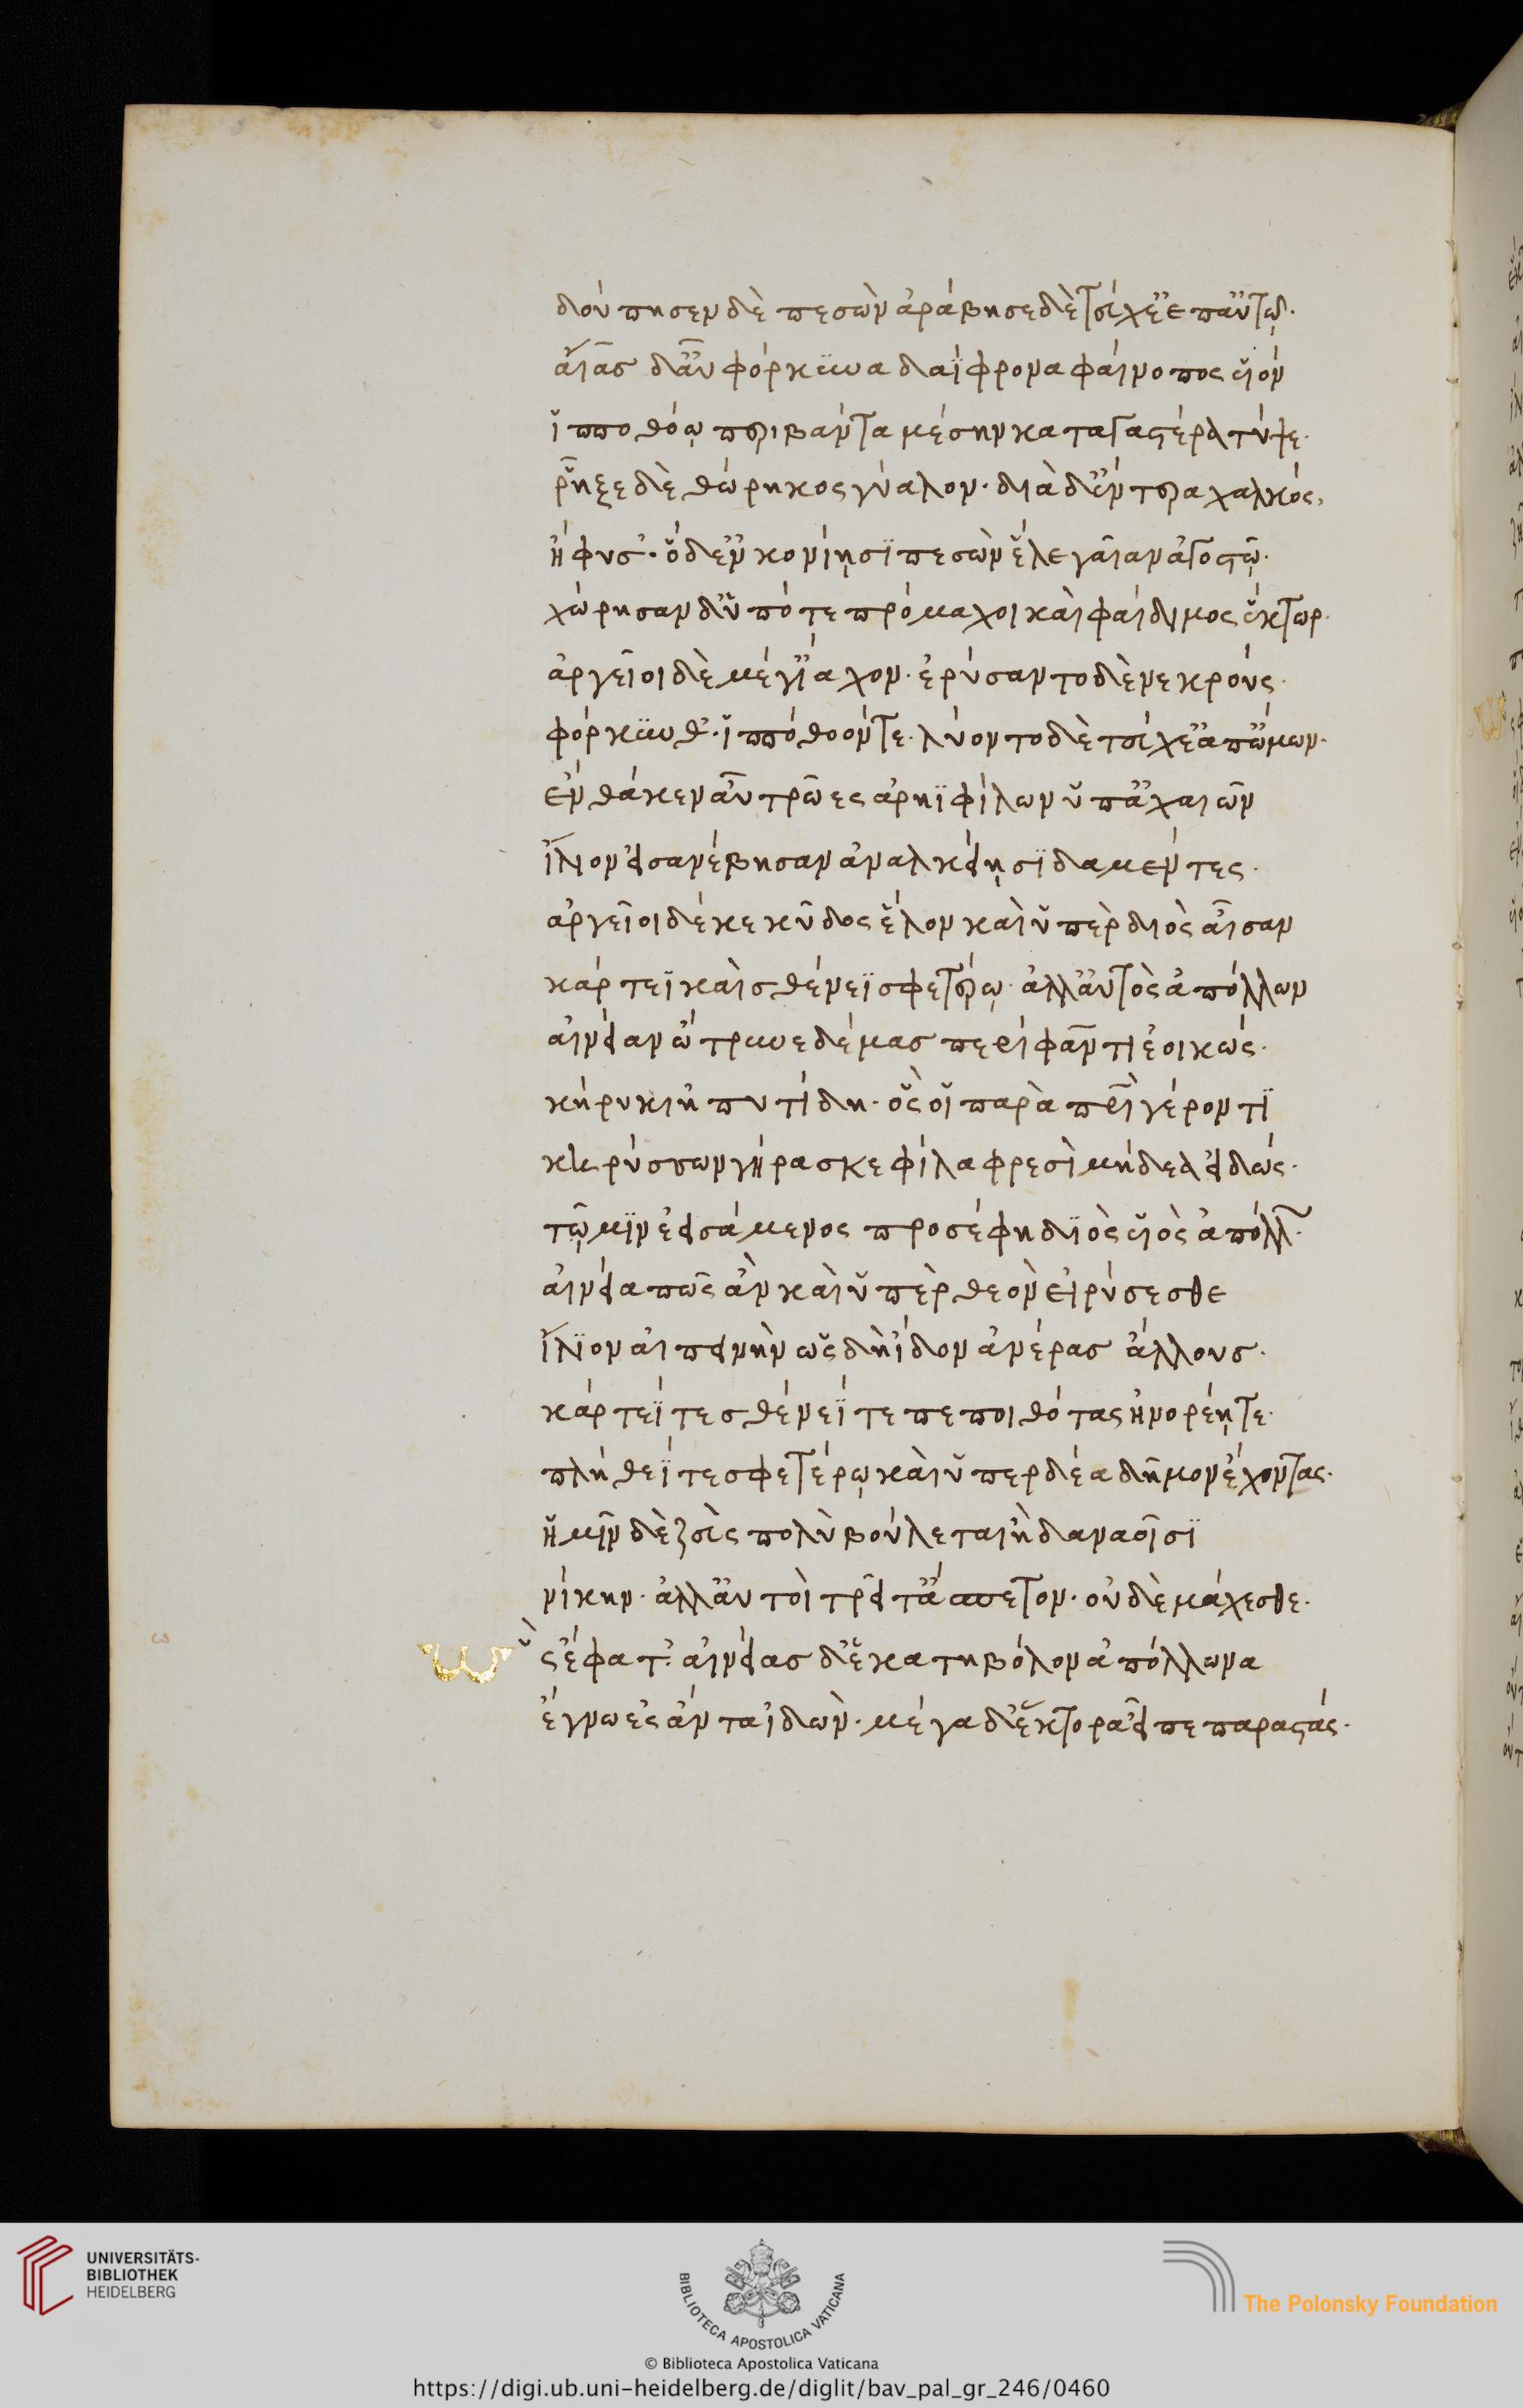 δούπησεν δὲ πεσὼν ἀράβησε δὲ τεύχε' ἐπ' αὐτῶ.
αἴας δ' αὖ φόρκυνα δαΐφρονα φαίνοπος υἱὸν
ἱπποθόω περιβάντα μέσην κατὰ γαστέρα τύψε.
ῥῆξε δὲ θώρηκος γύαλον. διὰ δ' ἔντερα χαλκός,
ἤφυσ'. ὁ δ' ἐν κονίῃσϊ πεσὼν ἕλε γαῖαν ἀγοστῷ.
χώρησαν δ' ὑπό τε πρόμαχοι καὶ φαίδιμος ἕκτωρ.
ἀργεῖοι δὲ μέγ' ἴαχον. ἐρύσαντο δὲ νεκρούς.
φόρκυν θ'. ἱππόθοόν τε. λύοντο δὲ τεύχε' ἀπ' ὤμων.
ἐνθά κεν αὖ τρῶες ἀρηϊφίλων ὑπ' ἀχαιῶν
ἴλιον εἰσανέβησαν ἀναλκείῃσϊ δαμέντες.
ἀργεῖοι δέ κε κῦδος ἕλον καὶ ὑπὲρ διὸς αἶσαν
κάρτεϊ καὶ σθένεϊ σφετέρῳ. ἀλλ' αὐτὸς ἀπόλλων
αἰνείαν ὤτρυνε δέμας περίφαντι ἐοικώς.
κήρυκι ἠπυτίδῃ. ὅς οἱ παρὰ πατρὶ γέροντϊ
κηρύσσων γήρασκε φίλα φρεσὶ μήδεα εἰδώς.
τῷ μϊν ἐεισάμενος προσέφη διὸς υἱὸς ἀπόλλων.
αἰνεία πῶς ἂν καὶ ὑπὲρ θεὸν εἰρύσεσθε
ἴλϊον αἰπεινὴν ὡς δὴ ἴδον ἀνέρας ἄλλους.
κάρτεΐ τε σθένεΐ τε πεποιθότας ἠνορέῃ τε.
πλήθεΐ τε σφετέρῳ καὶ ὑπερδέα δῆμον ἔχοντας.
ἡμῖν δὲ ζεὺς πολὺ βούλεται ἢ δαναοῖσϊ
νίκην. ἀλλ' αὐτοὶ τρεῖτ' ἄσπετον. οὐδὲ μάχεσθε.
ὣς ἔφατ'. αἰνείας δ' ἑκατηβόλον ἀπόλλωνα
ἔγνω ἐς ἄντα ἰδὼν. μέγα δ' ἕκτορα εἶπε παραστάς.
UNIVERSITÄTS-
BIBLIOTHEK
HEIDELBERG
BIBLIOTECA APOSTOLICA VATICANA
The Polonsky Foundation
© Biblioteca Apostolica Vaticana
https://digi.ub.uni-heidelberg.de/diglit/bav_pal_gr_246/0460